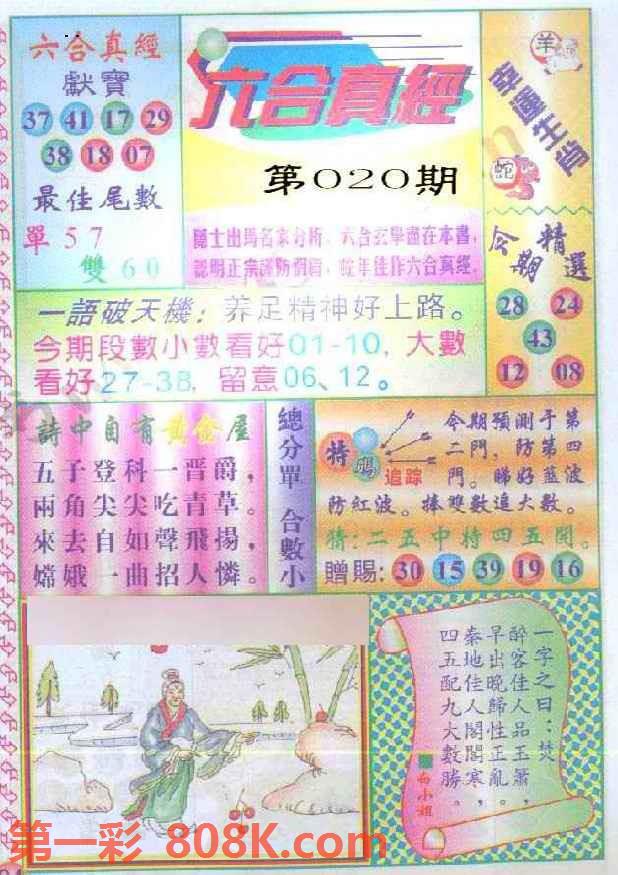 六合真經
獻寶
37 41 17 29
38 18 07
最佳尾數
單57
雙60
六合真經
第020期
羊
幸運生肖
蛇
今期精選
28 24
43
12 08
一語破天機：养足精神好上路。
今期段數小數看好01-10，大數
看好27-38，留意06、12。
詩中自有黄金屋
五子登科一晋爵，
兩角尖尖吃青草。
來去自如聲飛揚，
嫦娥一曲招人憐。
總分單 合數小
特碼
追踪
今期預測于第
二門，防第四
門。睇好藍波
防紅波。捧雙數追大數。
猜：二五中特四五開。
贈賜：30 15 39 19 16
一字之曰：焚
醉客佳人品玉簫，
早出晚歸性正亂。
秦地佳人閣閣寒，
四五配九大數勝。
白小姐
第一彩 808K.com